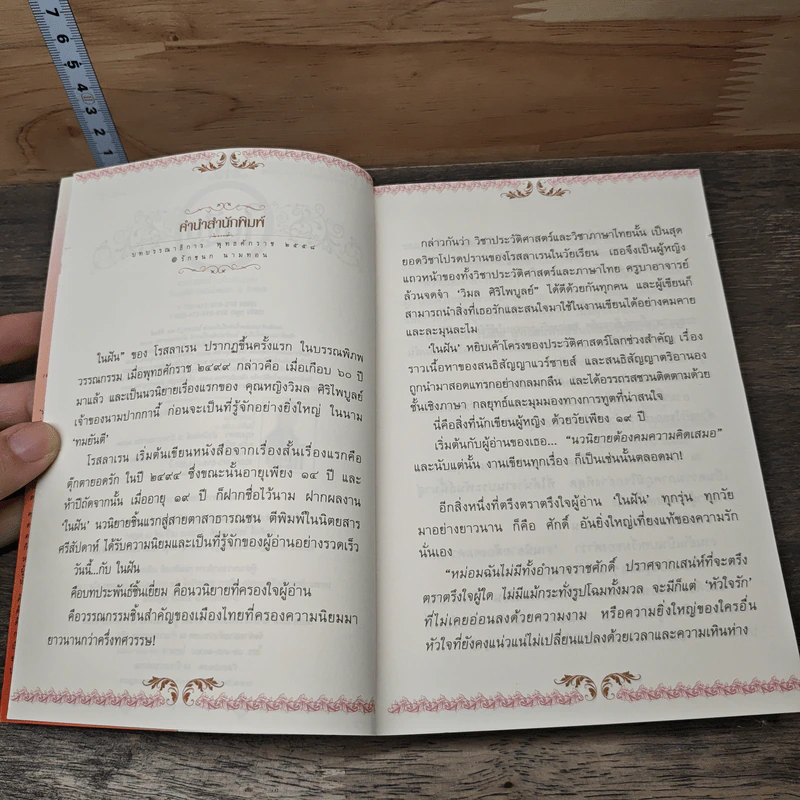 7 6 5 4 3 2 1
คำนำสำนักพิมพ์
บทบรรณาธิการ พุทธศักราช ๒๕๕๘
@ รักชนก นามทอน
ในฝัน" ของ โรสลาเรน ปรากฏขึ้นครั้งแรก ในบรรณพิภพ
วรรณกรรม เมื่อพุทธศักราช ๒๔๙๙ กล่าวคือ เมื่อเกือบ ๖๐ ปี
มาแล้ว และเป็นนวนิยายเรื่องแรกของ คุณหญิงวิมล ศิริไพบูลย์
เจ้าของนามปากกานี้ ก่อนจะเป็นที่รู้จักอย่างยิ่งใหญ่ ในนาม
'ทมยันตี'
โรสลาเรน เริ่มต้นเขียนหนังสือจากเรื่องสั้นเรื่องแรกคือ
ตุ๊กตายอดรัก ในปี ๒๔๙๔ ซึ่งขณะนั้นอายุเพียง ๑๔ ปี และ
ห้าปีถัดจากนั้น เมื่ออายุ ๑๙ ปี ก็ฝากชื่อไว้นาม ฝากผลงาน
'ในฝัน' นวนิยายชิ้นแรกสู่สายตาสาธารณชน ตีพิมพ์ในนิตยสาร
ศรีสัปดาห์ ได้รับความนิยมและเป็นที่รู้จักของผู้อ่านอย่างรวดเร็ว
วันนี้...กับ ในฝัน
คือบทประพันธ์ชิ้นเยี่ยม คือนวนิยายที่ครองใจผู้อ่าน
คือวรรณกรรมชิ้นสำคัญของเมืองไทยที่ครองความนิยมมา
ยาวนานกว่าครึ่งทศวรรษ!
กล่าวกันว่า วิชาประวัติศาสตร์และวิชาภาษาไทยนั้น เป็นสุด
ยอดวิชาโปรดปรานของโรสลาเรนในวัยเรียน เธอจึงเป็นผู้หญิง
แถวหน้าของทั้งวิชาประวัติศาสตร์และภาษาไทย ครูบาอาจารย์
ล้วนจดจำ 'วิมล ศิริไพบูลย์' ได้ดีด้วยกันทุกคน และผู้เขียนก็
สามารถนำสิ่งที่เธอรักและสนใจมาใช้ในงานเขียนได้อย่างคมคาย
และละมุนละไม
'ในฝัน' หยิบเค้าโครงของประวัติศาสตร์โลกช่วงสำคัญ เรื่อง
ราวเนื้อหาของสนธิสัญญาแวร์ซายส์ และสนธิสัญญาตริอานอง
ถูกนำมาสอดแทรกอย่างกลมกลืน และได้อรรถรสชวนติดตามด้วย
ชั้นเชิงภาษา กลยุทธ์และมุมมองทางการทูตที่น่าสนใจ
นี่คือสิ่งที่นักเขียนผู้หญิง ด้วยวัยเพียง ๑๙ ปี
เริ่มต้นกับผู้อ่านของเธอ... "นวนิยายต้องคมความคิดเสมอ"
และนับแต่นั้น งานเขียนทุกเรื่อง ก็เป็นเช่นนั้นตลอดมา!
อีกสิ่งหนึ่งที่ตรึงตราตรึงใจผู้อ่าน 'ในฝัน' ทุกรุ่น ทุกวัย
มาอย่างยาวนาน ก็คือ ศักดิ์ อันยิ่งใหญ่เที่ยงแท้ของความรัก
นั่นเอง
"หม่อมฉันไม่มีทั้งอำนาจราชศักดิ์ ปราศจากเสน่ห์ที่จะตรึง
ตราตรึงใจผู้ใด ไม่มีแม้กระทั่งรูปโฉมทั้งมวล จะมีก็แต่ 'หัวใจรัก'
ที่ไม่เคยอ่อนลงด้วยความงาม หรือความยิ่งใหญ่ของใครอื่น
หัวใจที่ยังคงแน่วแน่ไม่เปลี่ยนแปลงด้วยเวลาและความเหินห่าง